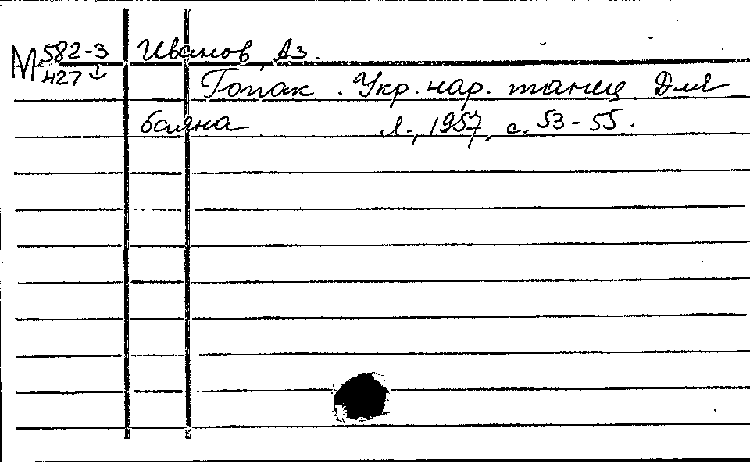 М 582-3 Иванов, Аз.
427 ↓ Гопак. Укр. нар. танец. Для
баяна. Л., 1957, с. 53-55.